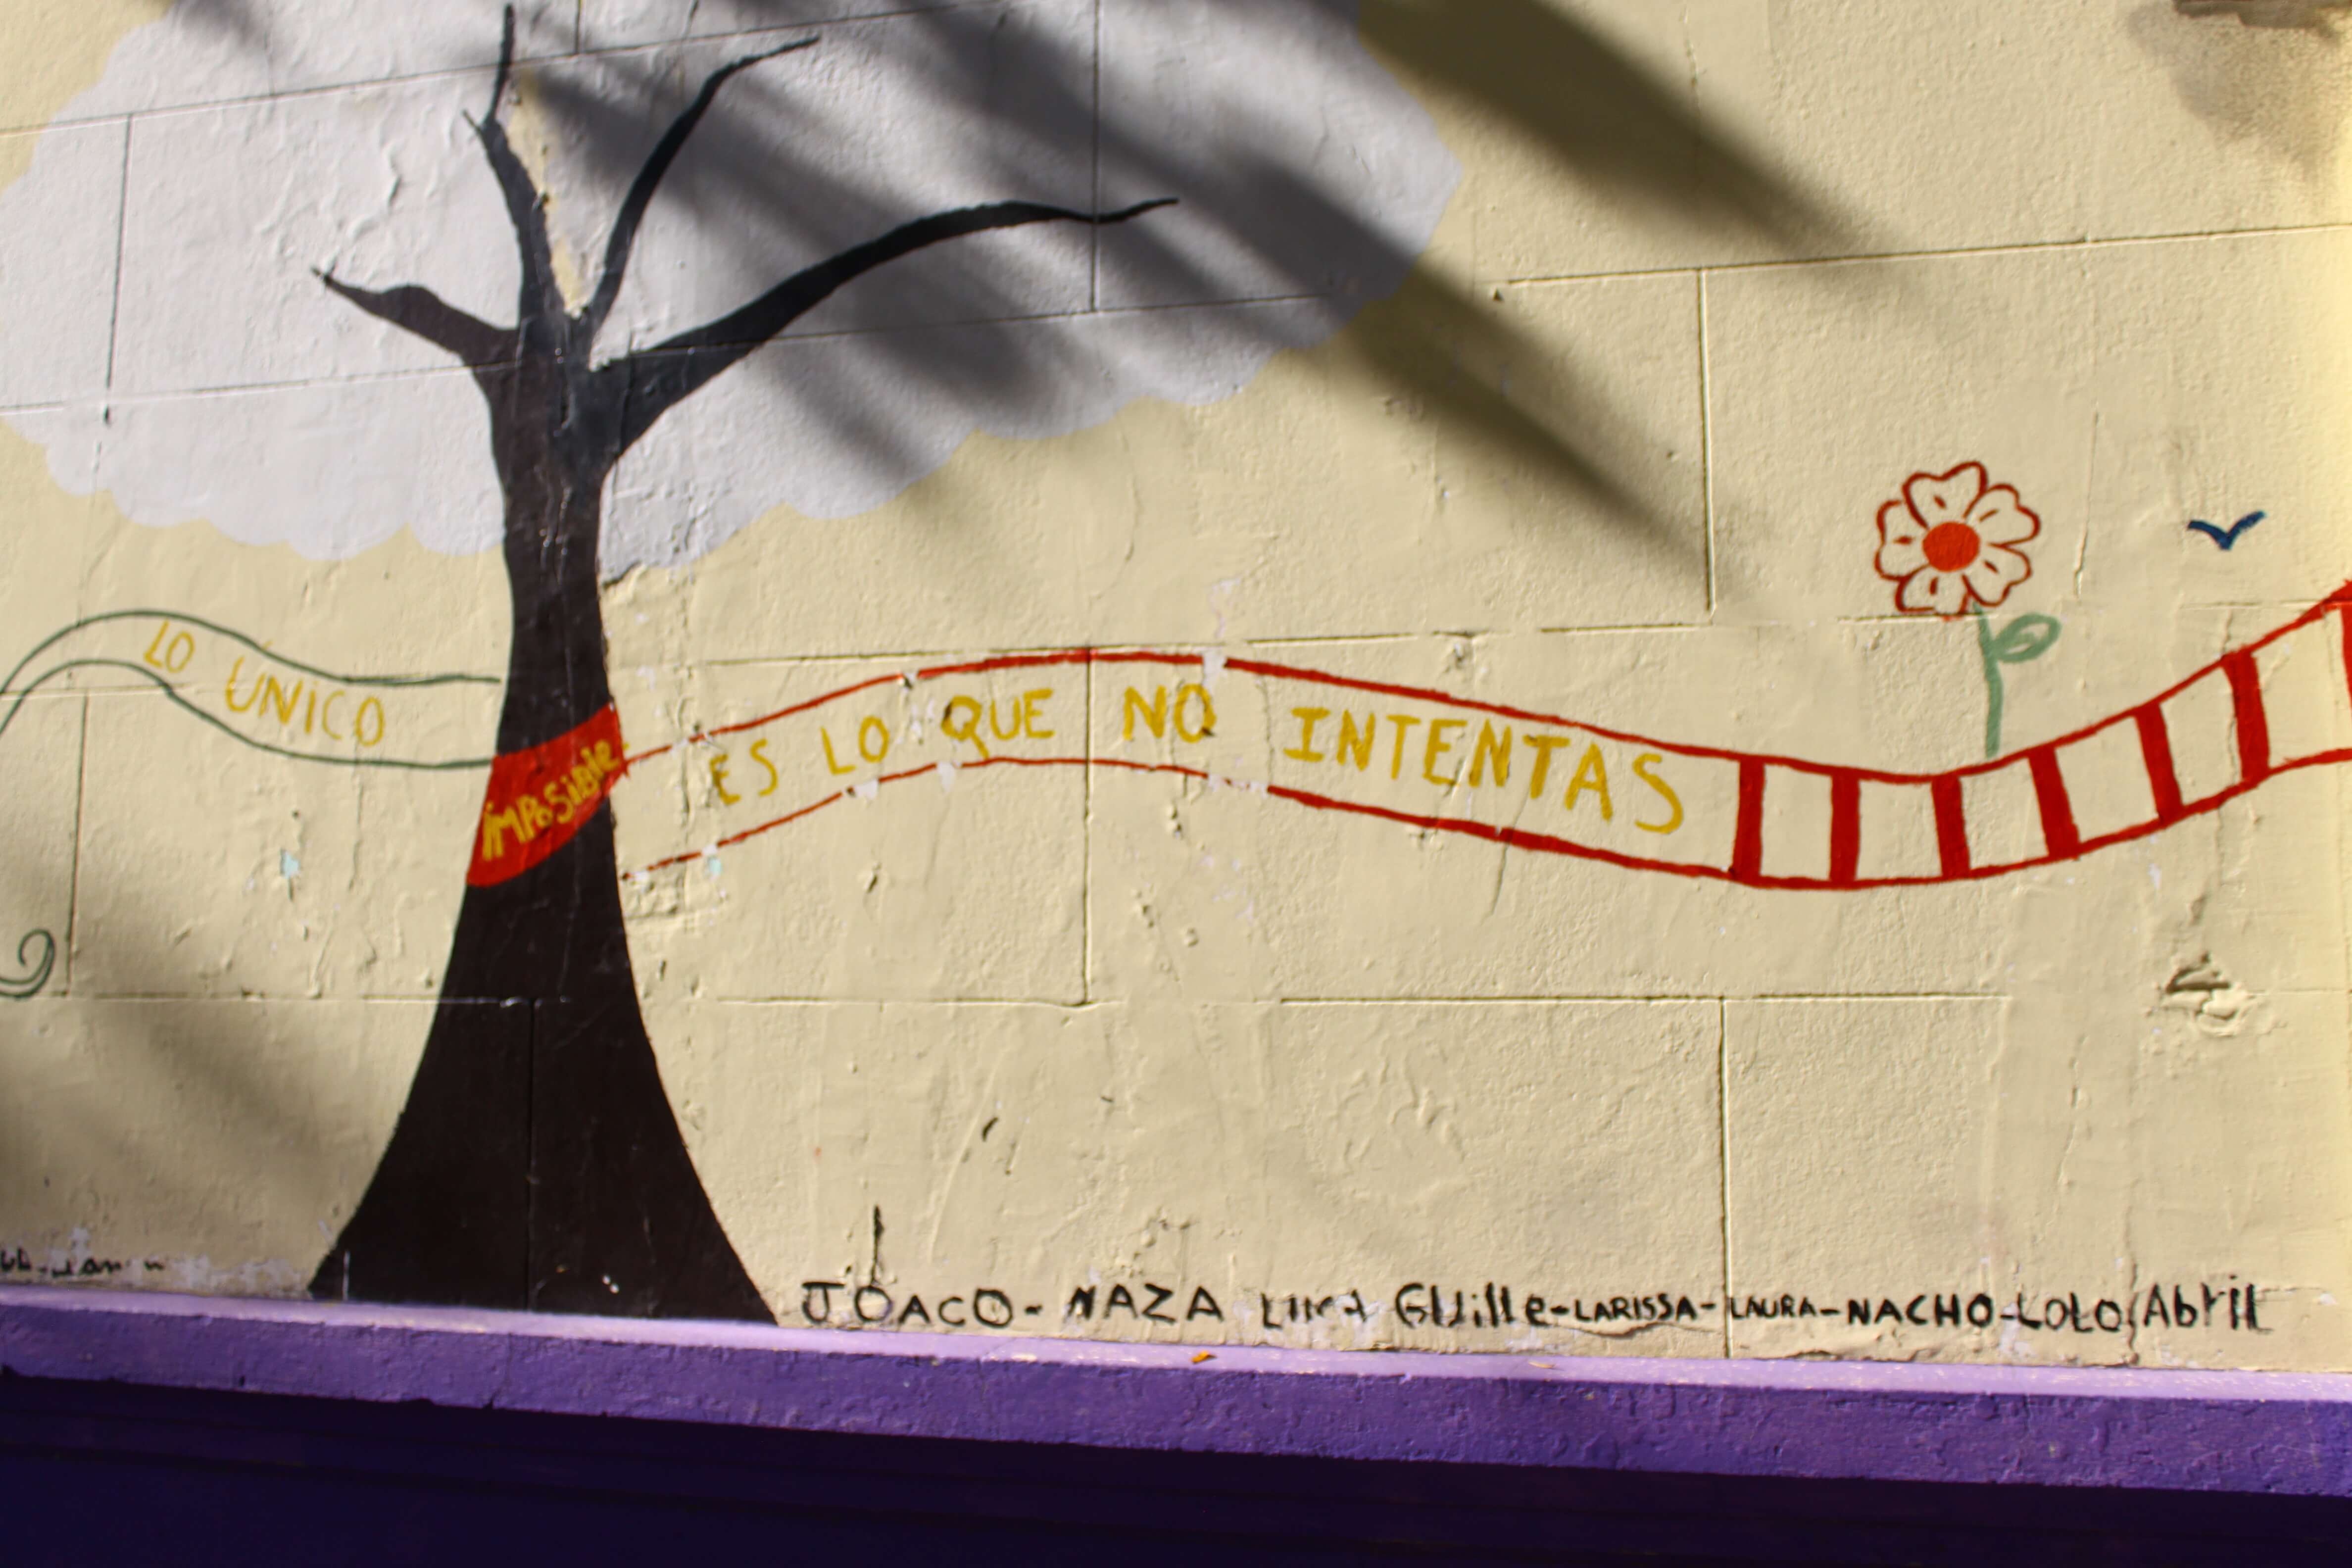 LO ÚNICO IMPOSIBLE ES LO QUE NO INTENTAS
JOACO- NAZA LIMA GUille-LARISSA-LAURA-NACHO-LOLO Abril